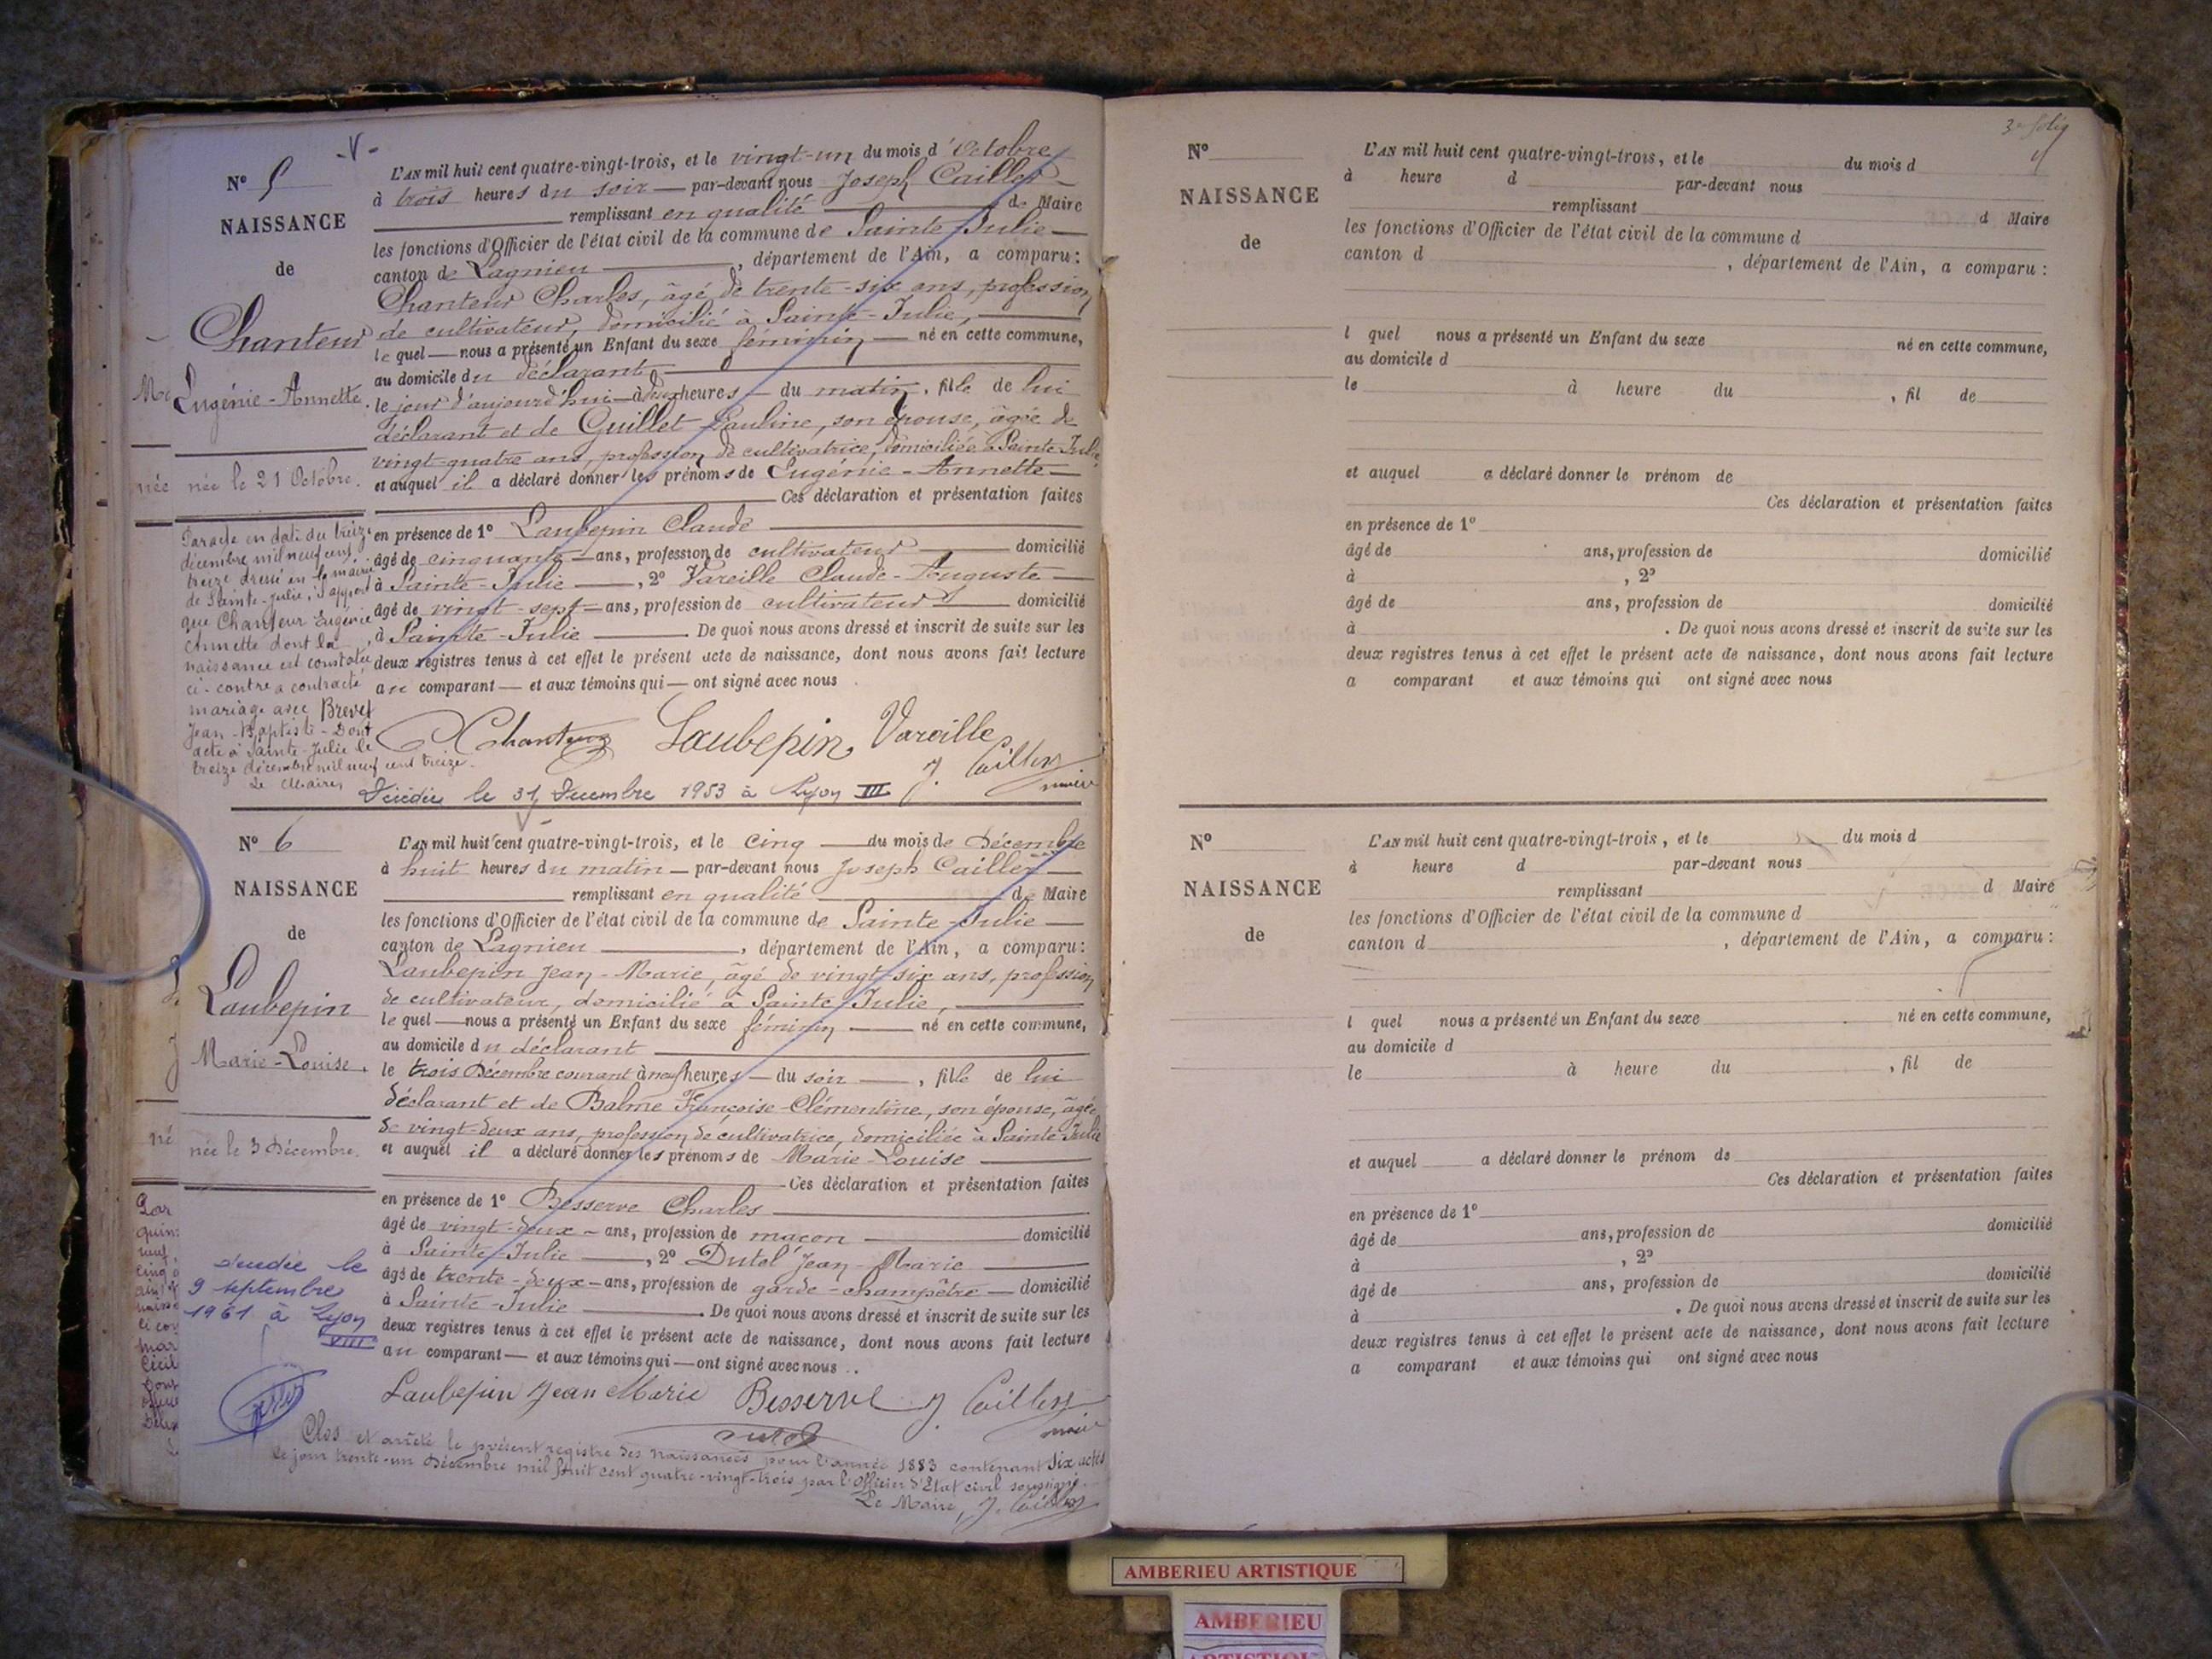 N° 5
NAISSANCE
de
Chanteur
Eugénie-Annette.
née le 21 Octobre.
Par acte en date du treize
décembre mil neuf cent
treize dressé en la mairie
de Sainte-Julie, il appert
que Chanteur Eugénie
Annette dont la
naissance est constatée
ci-contre a contracté
mariage avec Brevet
Jean-Baptiste - Dont
acte à Sainte-Julie le
treize décembre mil neuf cent treize.
Le Maire,
L'AN mil huit cent quatre-vingt-trois, et le vingt-un du mois d'Octobre
à trois heures du soir — par-devant nous Joseph Caillet
remplissant en qualité — de Maire
les fonctions d'Officier de l'état civil de la commune de Sainte-Julie —
canton de Lagnieu —, département de l'Ain, a comparu:
Chanteur Charles, âgé de trente-six ans, profession
de cultivateur, domicilié à Sainte-Julie, —
lequel — nous a présenté un Enfant du sexe féminin — né en cette commune,
au domicile du déclarant —
le jour d'aujourd'hui — à deux heures — du matin, fille de lui
déclarant et de Guillet Pauline, son épouse, âgée de
vingt-quatre ans, profession de cultivatrice, domiciliée à Sainte-Julie,
et auquel il a déclaré donner les prénoms de Eugénie-Annette —
Ces déclaration et présentation faites
en présence de 1° Laubepin Claude —
âgé de cinquante — ans, profession de cultivateur — domicilié
à Sainte-Julie —, 2° Vareille Claude-Auguste —
âgé de vingt-sept — ans, profession de cultivateur — domicilié
à Sainte-Julie —. De quoi nous avons dressé et inscrit de suite sur les
deux registres tenus à cet effet le présent acte de naissance, dont nous avons fait lecture
au comparant — et aux témoins qui — ont signé avec nous.
Chanteur Laubepin Vareille
J. Caillet
maire
Décédée le 31 Decembre 1953 à Lyon III
N° 6
NAISSANCE
de
Laubepin
Marie-Louise.
née le 3 Décembre.
décédée le
9 septembre
1961 à Lyon
VIII
L'AN mil huit cent quatre-vingt-trois, et le cinq — du mois de Décembre
à huit heures du matin — par-devant nous Joseph Caillet —
remplissant en qualité — de Maire
les fonctions d'Officier de l'état civil de la commune de Sainte-Julie —
canton de Lagnieu —, département de l'Ain, a comparu:
Laubepin Jean-Marie, âgé de vingt-six ans, profession
de cultivateur, domicilié à Sainte-Julie, —
lequel — nous a présenté un Enfant du sexe féminin — né en cette commune,
au domicile du déclarant —
le trois Décembre courant à neuf heures — du soir —, fille de lui
déclarant et de Balme Françoise-Clémentine, son épouse, âgée
de vingt-deux ans, profession de cultivatrice, domiciliée à Sainte-Julie
et auquel il a déclaré donner les prénoms de Marie-Louise —
Ces déclaration et présentation faites
en présence de 1° Besserve Charles —
âgé de vingt-deux — ans, profession de maçon — domicilié
à Sainte-Julie —, 2° Dutel Jean-Marie —
âgé de trente-deux — ans, profession de garde-champêtre — domicilié
à Sainte-Julie —. De quoi nous avons dressé et inscrit de suite sur les
deux registres tenus à cet effet le présent acte de naissance, dont nous avons fait lecture
au comparant — et aux témoins qui — ont signé avec nous.
Laubepin Jean Marie Besserve J. Caillet
Dutel maire
Clos et arrêté le présent registre des naissances pour l'année 1883 contenant six actes
le jour trente-un Décembre mil huit cent quatre-vingt-trois, par l'Officier d'Etat civil soussigné.
Le Maire, J. Caillet
3e folio
N°
NAISSANCE
de
L'AN mil huit cent quatre-vingt-trois, et le du mois d
à heure d par-devant nous
remplissant d Maire
les fonctions d'Officier de l'état civil de la commune d
canton d , département de l'Ain, a comparu:
l quel nous a présenté un Enfant du sexe né en cette commune,
au domicile d
le à heure du , fil de
et auquel a déclaré donner le prénom de
Ces déclaration et présentation faites
en présence de 1°
âgé de ans, profession de domicilié
à , 2°
âgé de ans, profession de domicilié
à . De quoi nous avons dressé et inscrit de suite sur les
deux registres tenus à cet effet le présent acte de naissance, dont nous avons fait lecture
a comparant et aux témoins qui ont signé avec nous
N°
NAISSANCE
de
L'AN mil huit cent quatre-vingt-trois, et le du mois d
à heure d par-devant nous
remplissant d Maire
les fonctions d'Officier de l'état civil de la commune d
canton d , département de l'Ain, a comparu:
l quel nous a présenté un Enfant du sexe né en cette commune,
au domicile d
le à heure du , fil de
et auquel a déclaré donner le prénom de
Ces déclaration et présentation faites
en présence de 1°
âgé de ans, profession de domicilié
à , 2°
âgé de ans, profession de domicilié
à . De quoi nous avons dressé et inscrit de suite sur les
deux registres tenus à cet effet le présent acte de naissance, dont nous avons fait lecture
a comparant et aux témoins qui ont signé avec nous
AMBERIEU ARTISTIQUE
AMBERIEU
ARTISTIQUE